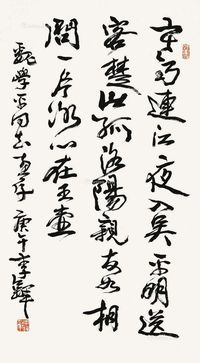 寒雨連江夜入吳平明送
客楚山孤洛陽親友如相
問一片冰心在玉壺
學同志庚午李鐸